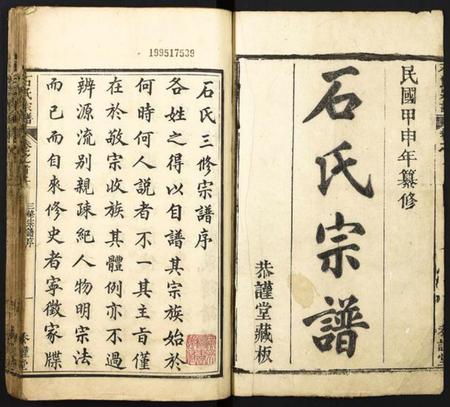 民國甲申年纂修
石氏宗譜
恭謹堂藏板
199517539
石氏三修宗譜序
各姓之得以自譜其宗族始於
何時何人說者不一其主旨僅
在於敬宗收族其體例亦不過
辨源流別親疎紀人物明宗法
而已而自來修史者寧徵家牒
三修宗譜序
一
恭謹堂